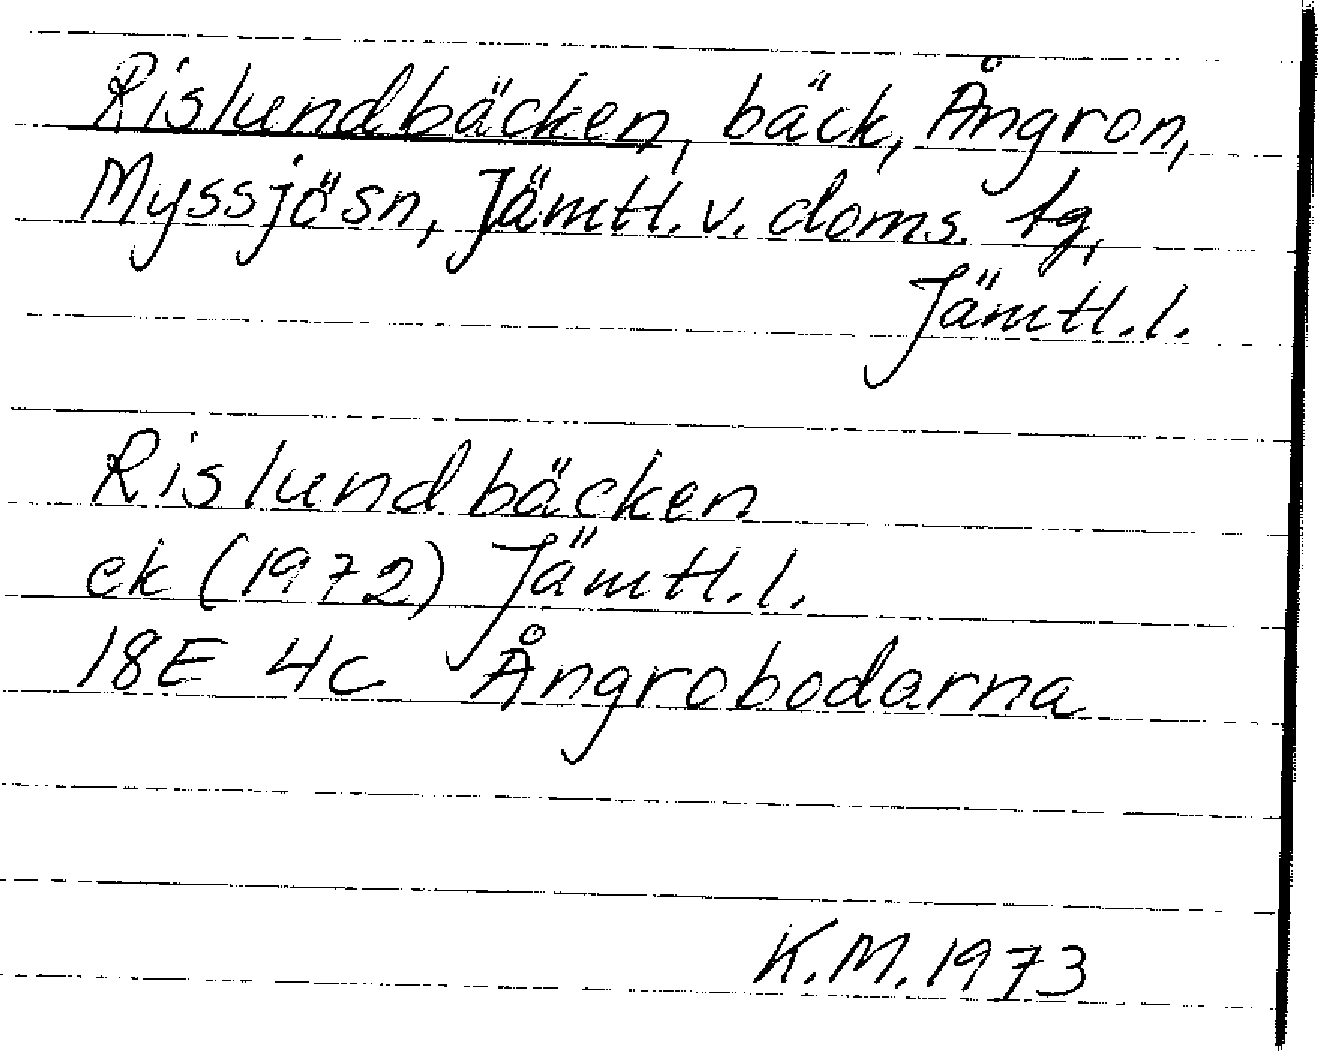 Rislundbäcken, bäck, Ångron,
Myssjösn, Jämtl. v. doms. tg,
Jämtl. l.
Rislundbäcken
ek (1972) Jämtl. l.
18E 4c Ångrobodarna
K.M. 1973